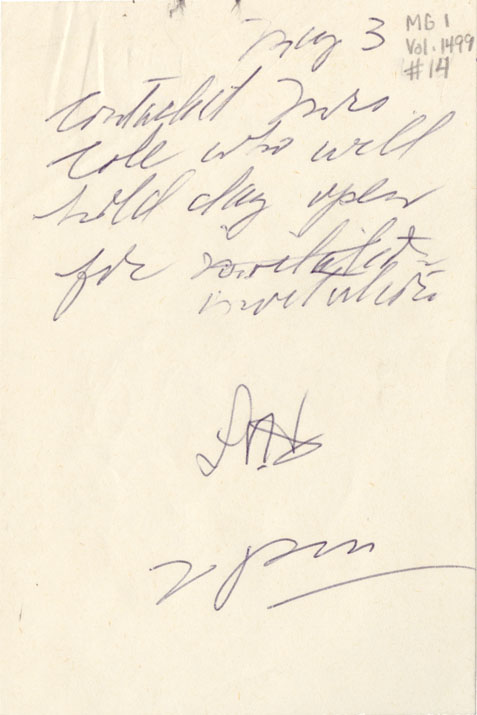 May 3
MG 1
Vol. 1499
#14
Contacted Mrs
Cole who will
hold day open
for
invitation
2 pm